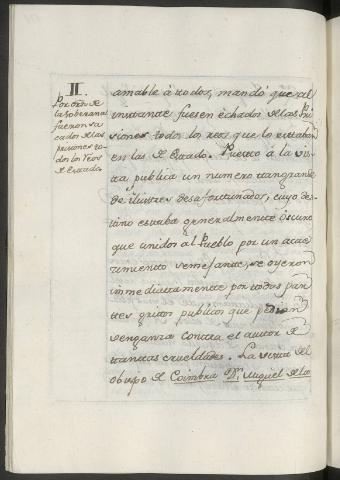 II.
Por orden de
la Soberana
fueron sa
cados de las
prisiones to
dos los reos
de Estado.
amable à todos, mandó que al
instante fuesen èchados de las Pri
siones todos los reos que lo estaban
en las de Estado. Puesto á la vis
ta publica un numero tan grande
de ilustres desafortunados, cuyo des
tino estaba generalmente oscuro
que unidos al Pueblo por un acae
cimiento semejante, se oyeron
immediatamente por todas par
tes gritos publicos que pedian
venganza contra el autor de
tantas crueldades. La vista del
obispo de Coimbra Dn. Miguel de la